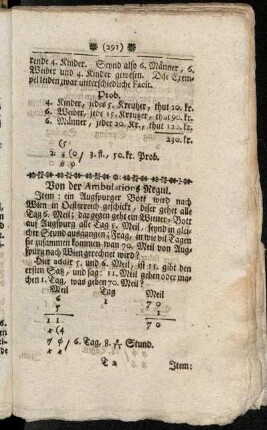 (291)
rende 4. Kinder. Seynd also 6. Männer, 6.
Weiber und 4. Kinder gewesen. Dise Exem-
pel leiden zwar unterschiedliche Facit.
Prob.
4. Kinder, jedes 5. Kreutzer, thut 20. kr.
6. Weiber, jede 15. Kreutzer, thut 90. kr.
6. Männer, jeder 20. Kr., thut 120. kr.
230. kr.
(5
2 3 (0 / 3. fl., 50. kr. Prob.
6 0
Von der Ambulations Regul.
Item: ein Augspurger Bott wird nach
Wien in Oesterreich geschickt, diser gehet alle
Tag 6. Meil; dargegen geht ein Wiener-Bott
auf Augspurg alle Tag 5. Meil, seynd in gleicher
Stund ausgangen; Frag, in wie vil Tagen
sie zusammen kommen wan 70. Meil von Aug-
spurg nach Wien gerechnet wird?
Hier addir 5. und 6. Meil, ist 11. gibt den
ersten Satz, und sag: 11. Meil geben oder ma-
chen 1. Tag, was geben 70. Meil?
Meil Tag Meil
6 1 70
5 1
11 70
(4
7 0 / 6. Tag, 8. 8/11 Stund.
T 2 Item: